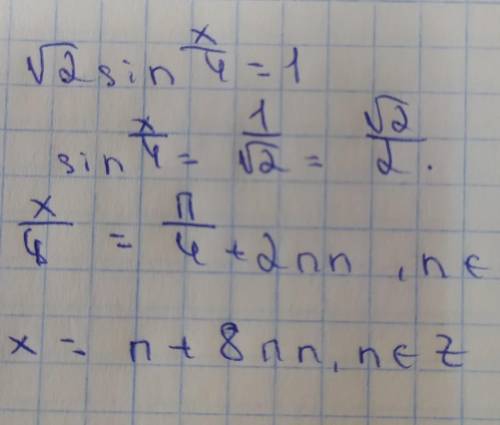 √2 sin x/4 = 1
sin x/4 = 1/√2 = √2/2.
x/4 = π/4 + 2πn , n ∈
x = π + 8πn, n ∈ Z